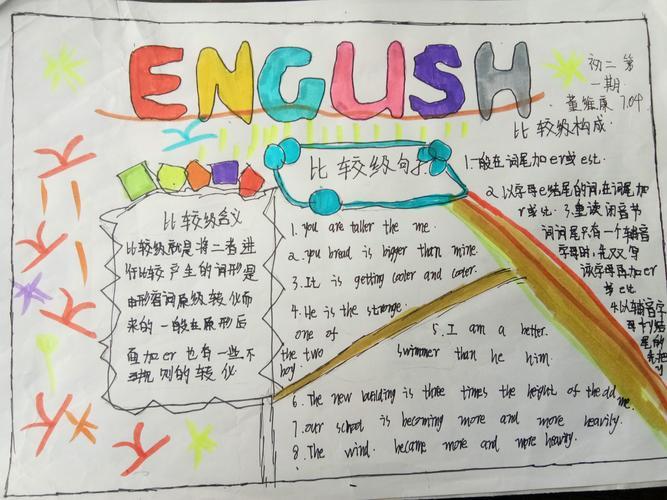 ENGLISH
初二第
一期
董维康 7.04
比较级含义
比较级就是将二者进
行比较产生的词形是
由形容词原级转化而
来的一般在原形后
面加er也有一些不
规则的转化
比较级句子
1. you are taller the me.
2. you bread is bigger than mine.
3. It is getting cooler and cooter.
4. He is the stronge.
one of
the two
boy.
5. I am a better.
swimmer than he him.
6. The new building is three times the height of the old me.
7. our school is becoming more and more heavily.
8. The wind. became more and more heaviy.
比较级构成.
1.一般在词尾加er或est.
2.以字母e结尾的词,在词尾加
r或st. 3.重读闭音节
词词尾只有一个辅音
字母时,先双写
该字母再加er
或est
4.以辅音字
母
尾的
先把